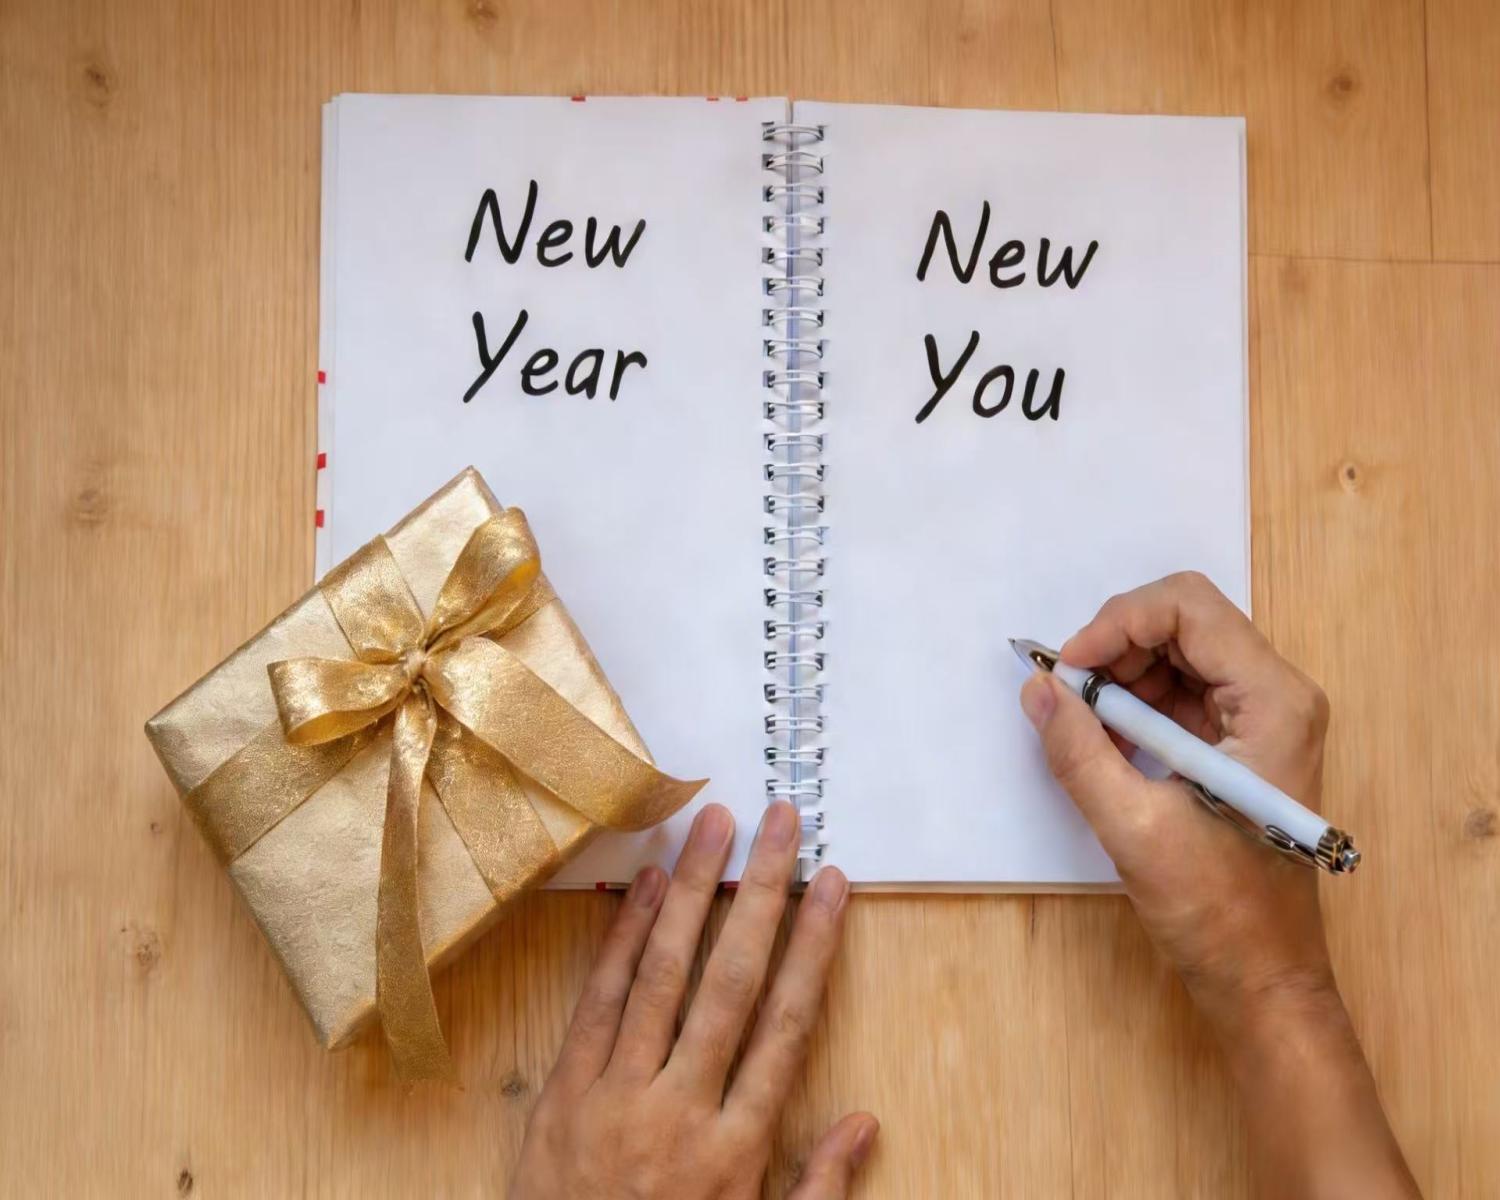 New
Year
New
You